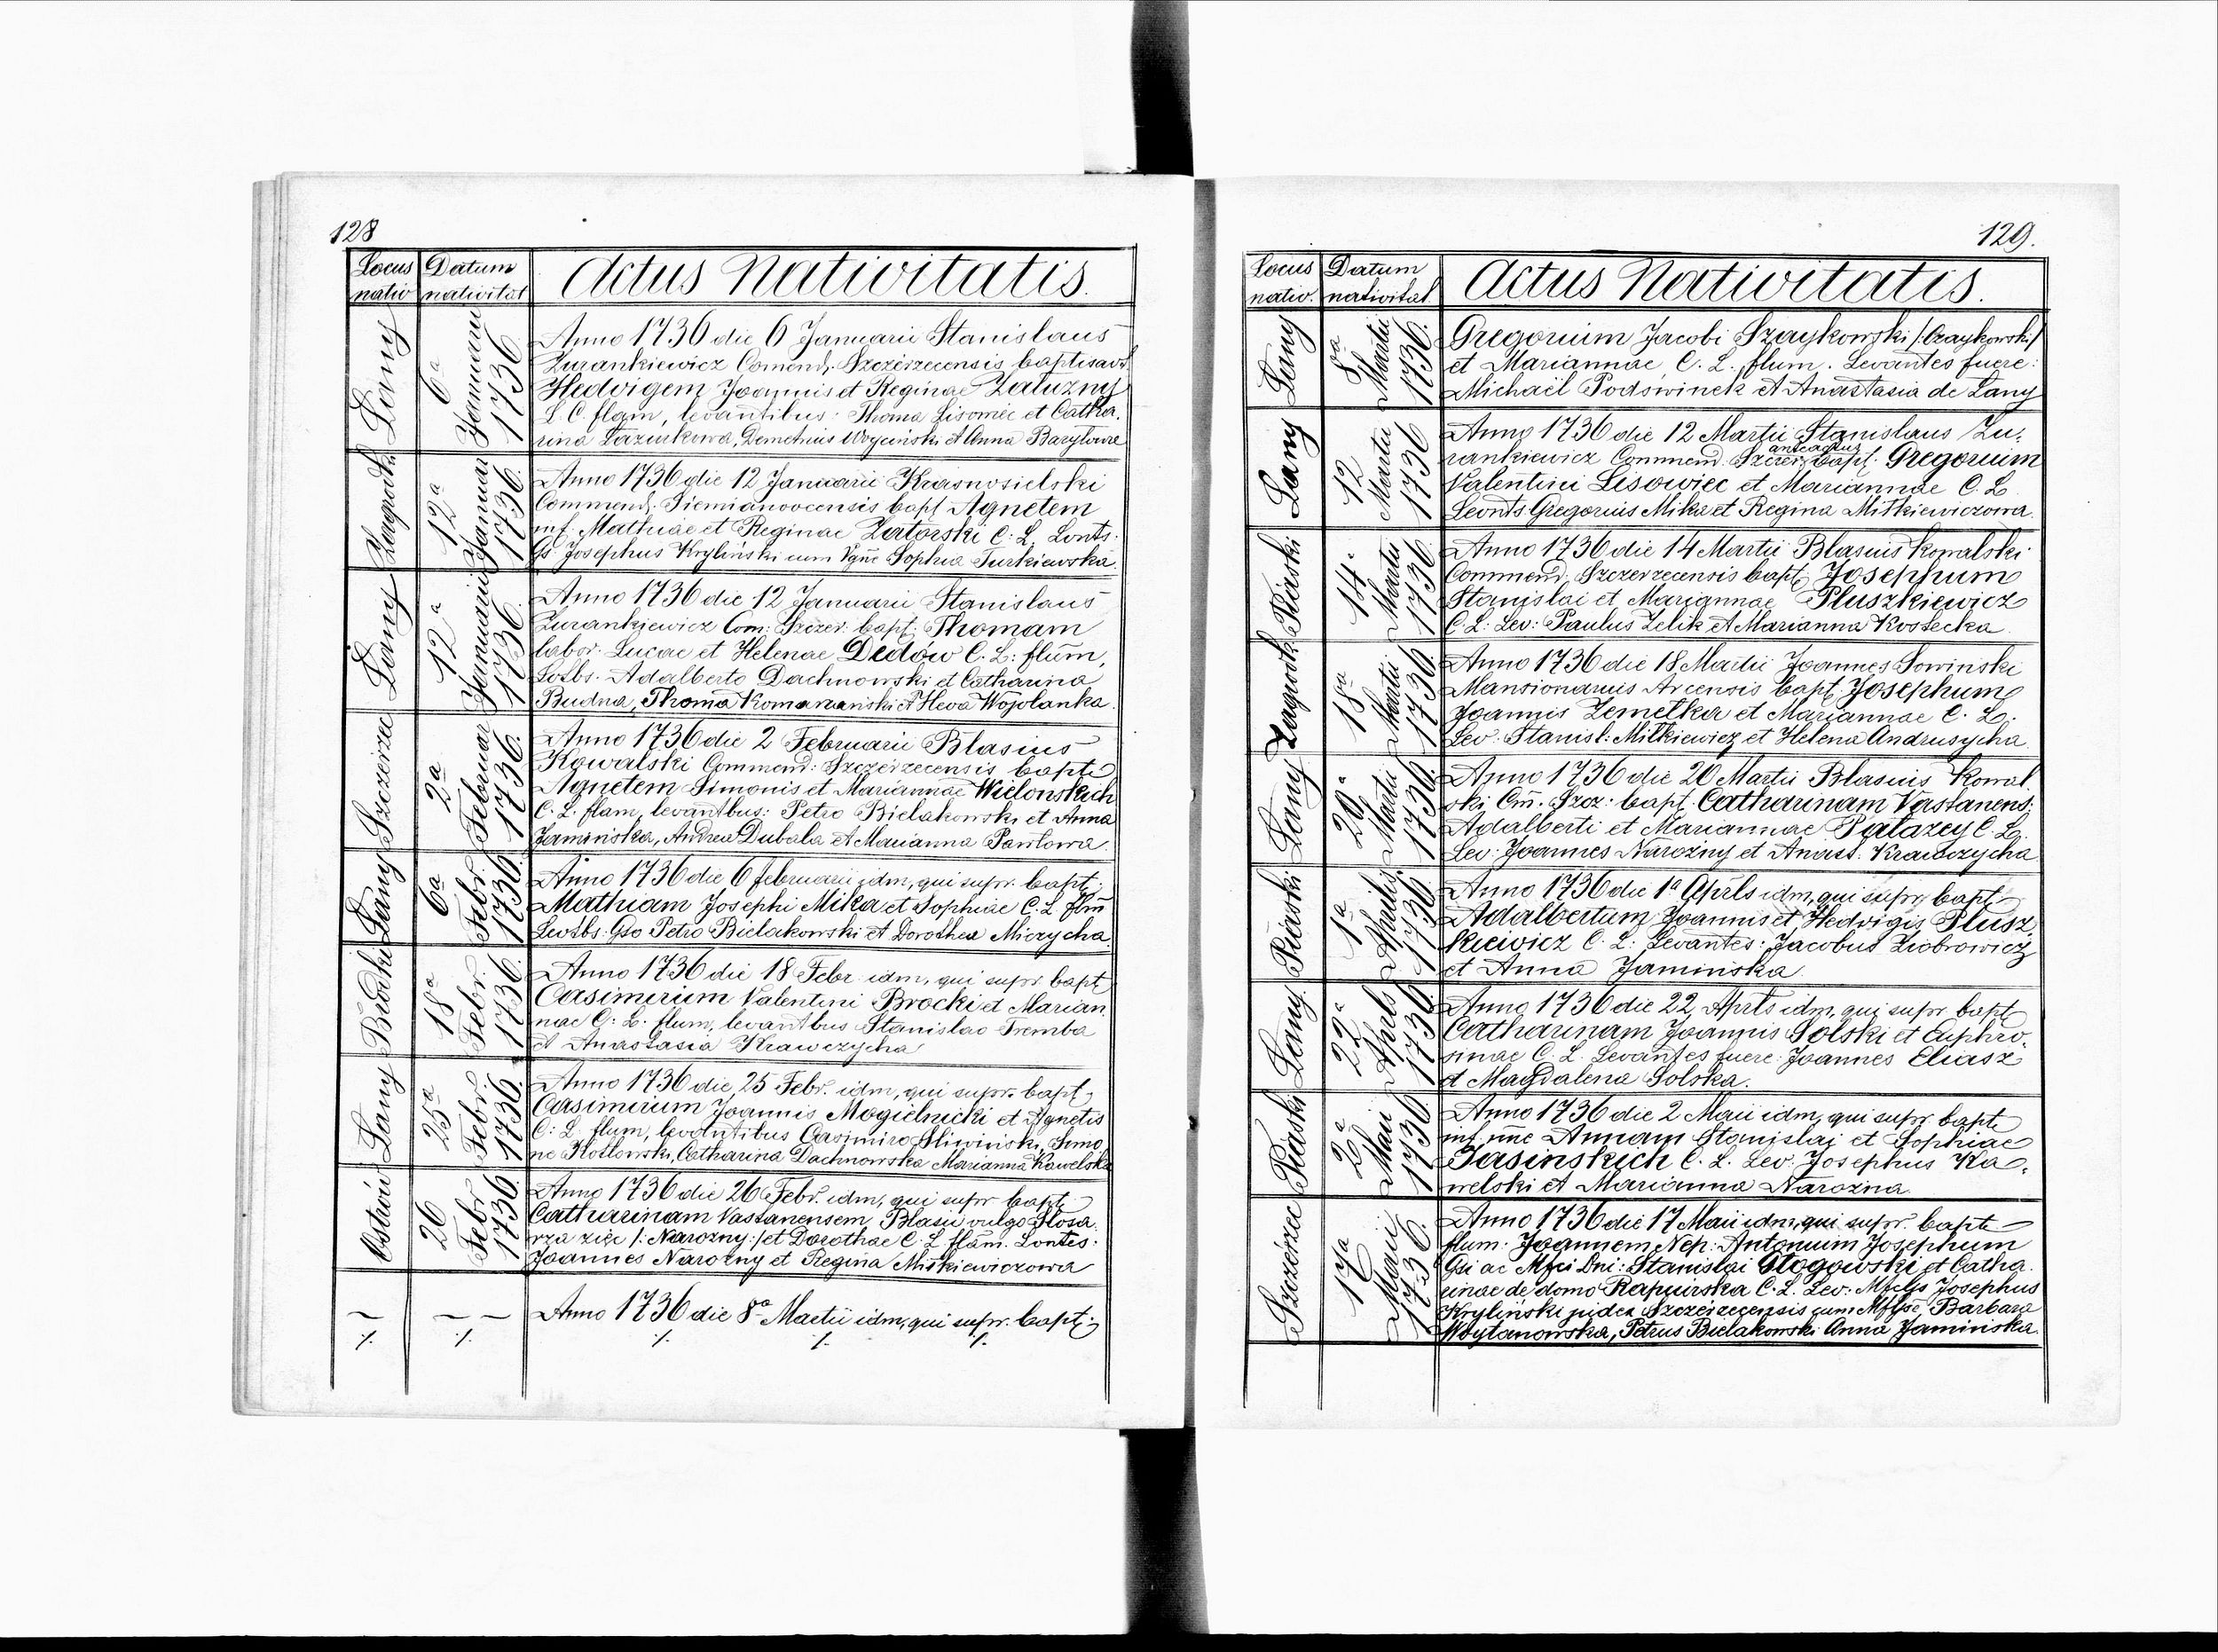 128
Locus nativ
Datum nativitat
Actus Nativitatis.
Łany
6a Januarii 1736
Anno 1736 die 6 Januarii Stanislaus
Żurankiewicz Comend. Szczérzecensis baptisavit
Hedvigem Joannis et Reginae Załuzny
L C. flam, levantibus: Thoma Lisowiec et Catha.
rina Łazurkowa, Demetrius Woyciński et Anna Baryłowa
Zagrodki
12a Januarii 1736.
Anno 1736 die 12 Januarii Krasnosielski
Commend. Siemianovcensis bapt Agnetem
inf. Mathiae et Reginae Zatorski C. L. Lvnts.
Gs Josephus Kryliński cum Vgne Sophia Turkiewska.
Łany
12a Januarii 1736.
Anno 1736 die 12 Januarii Stanislaus
Żurankiewicz Com: Szczer. bapt: Thomam
labor. Lucae et Helenae Dedów C. L: flum,
Lvtbs. Adalberto Dachnowski et Catharina
Budna, Thoma Komarański et Heva Wojolanka.
Szczerzec
2a Februar 1736.
Anno 1736 die 2 Februarii Blasius
Kowalski Commend: Szczerzecensis bapt:
Agnetem Simonis et Mariannae Wielonskich
C. L. flam, levantbus: Petro Bielakowski et Anna
Jaminska, Andrea Dubala et Marianna Pawłowa.
Łany
6a Febr. 1736.
Anno 1736 die 6 februarii idm, qui supr. bapt.
Mathiam Josephi Mika et Sophiae C. L flm
Levtbs: Gso Petro Bielakowski et Dorothea Miczycha.
Brodki
18a Febr. 1736.
Anno 1736 die 18 Febr. idm, qui supr bapt
Casimirum Valentini Brocki et Marian
nae C: L: flum, levantbus Stanislao Tremba
et Anastasia Krawczycha
Łany
25a Febr. 1736.
Anno 1736 die 25 Febr. idm, qui supr. bapt
Casimirum Joannis Mogielnicki et Agnetis
C: L flum, levantibus Casimiro Sliwiński, Simo
ne Kosłowski, Catharina Dachnowska Marianna Kawelska
Ostrów
26 Febr 1736.
Anno 1736 die 26 Febr. idm, qui supr bapt.
Catharinam Vastanensem Blasii vulgo Slosa.
rza zięc /: Narozny:/ et Dorothae C. L flam. Lvntes:
Joannes Narozny et Regina Mitkiewiczowa
Anno 1736 die 8a Martii idm, qui supr. bapt:
·/. ·/. ·/. ·/. ·/.
129.
Locus nativ.
Datum nativitat
Actus Nativitatis.
Łany
8a Martii 1736.
Gregorium Jacobi Szaykowski /:Czaykowski/
et Mariannae C. L. flum. Levantes fuere:
Michaël Podswinek et Anastasia de Łany
Łany
12 Martii 1736
Anno 1736 die 12 Martii Stanislaus Żu.
rankiewicz Commend. Szczer. bapt. Gregorium
Valentini Lisowiec et Mariannae C. L.
Levnts Gregorius Mika et Regina Mitkiewiczowa.
Piaski
14. Martii 1736.
Anno 1736 die 14 Martii Blasius Kowalski
Commend. Szczerzecensis bapt. Josephum
Stanislai et Mariannae Pluszkiewicz
C L: Lev: Paulus Zelik et Marianna Kossecka
Zagrodki
18a Martii 1736.
Anno 1736 die 18 Martii Joannes Sowinski
Mansionarius Arcensis bapt. Josephum
Joannis Zemełka et Mariannae C. L.
Lev: Stanisl: Mitkiewicz et Helena Andrusycha.
Łany
20a Martii 1736.
Anno 1736 die 20 Martii Blasius Kowal
ski Cm. Szcz: bapt. Catharinam Vastanens:
Adalberti et Mariannae Patazey C L.
Lev: Joannes Narożny et Anast. Krawczycha
Piaski
1a Aprilis 1736.
Anno 1736 die 1a Aprls idm, qui supr. bapt
Adalbertum Joannis et Hedvigis Plusz
kiewicz C. L: Levantes: Jacobus Ziobrowicz
et Anna Jamińska.
Łany
22a Aprls 1736.
Anno 1736 die 22, Aprls idm, qui supr bapt
Catharinam Joannis Solski et Euphro.
sinae C. L. Levantes fuere: Joannes Eliasz
et Magdalena Solska.
Piaski
2a Maii 1736.
Anno 1736 die 2 Maii idm, qui supr. bapt
inf. nne Annam Stanislai et Sophiae
Jasinskich C. L. Lev: Josephus Ka.
welski et Marianna Narożna.
Szczerzec
17a Maii 1736.
Anno 1736 die 17 Maii idm, qui supr. bapt
flum: Joannem Nep: Antonium Josephum
Gsi ac Mfci Dni: Stanislai Głogowski et Catha.
rinae de domo Rapuirska C. L. Lev: Mfcls Josephus
Kryliński judex Szczerzecensis cum Mflse Barbara
Woytanowska, Petrus Bielakowski Anna Jamińska.